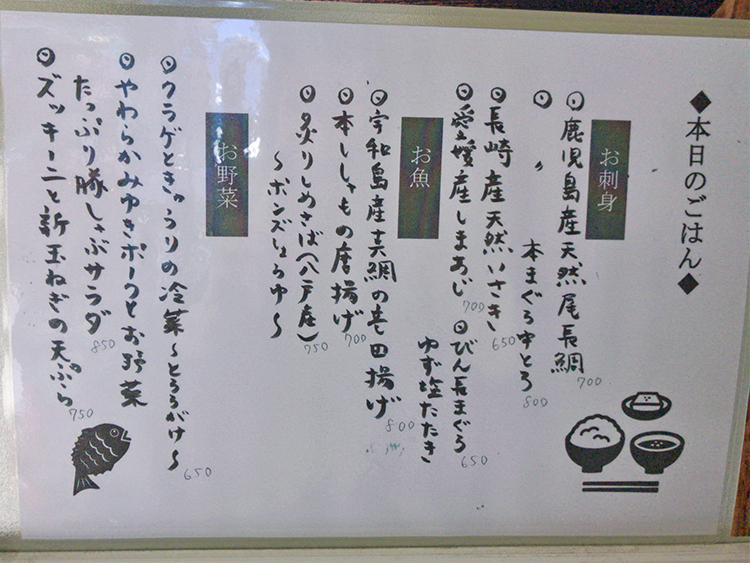 ◆本日のごはん◆
お刺身
◎鹿児島産天然尾長鯛 700
◎ 〃 本まぐろ中とろ 800
◎長崎産天然いさき 650
◎愛媛産しまあじ 700
◎びん長まぐろ
ゆず塩たたき 650
お魚
◎宇和島産真鯛の竜田揚げ 800
◎本ししゃもの唐揚げ 700
◎炙りしめさば(八戸産) 750
〜ポンズしょうゆ〜
お野菜
◎クラゲときゅうりの冷菜〜とろろがけ〜 650
◎やわらかみゆきポークとお野菜
たっぷり豚しゃぶサラダ 850
◎ズッキーニと新玉ねぎの天ぷら 750